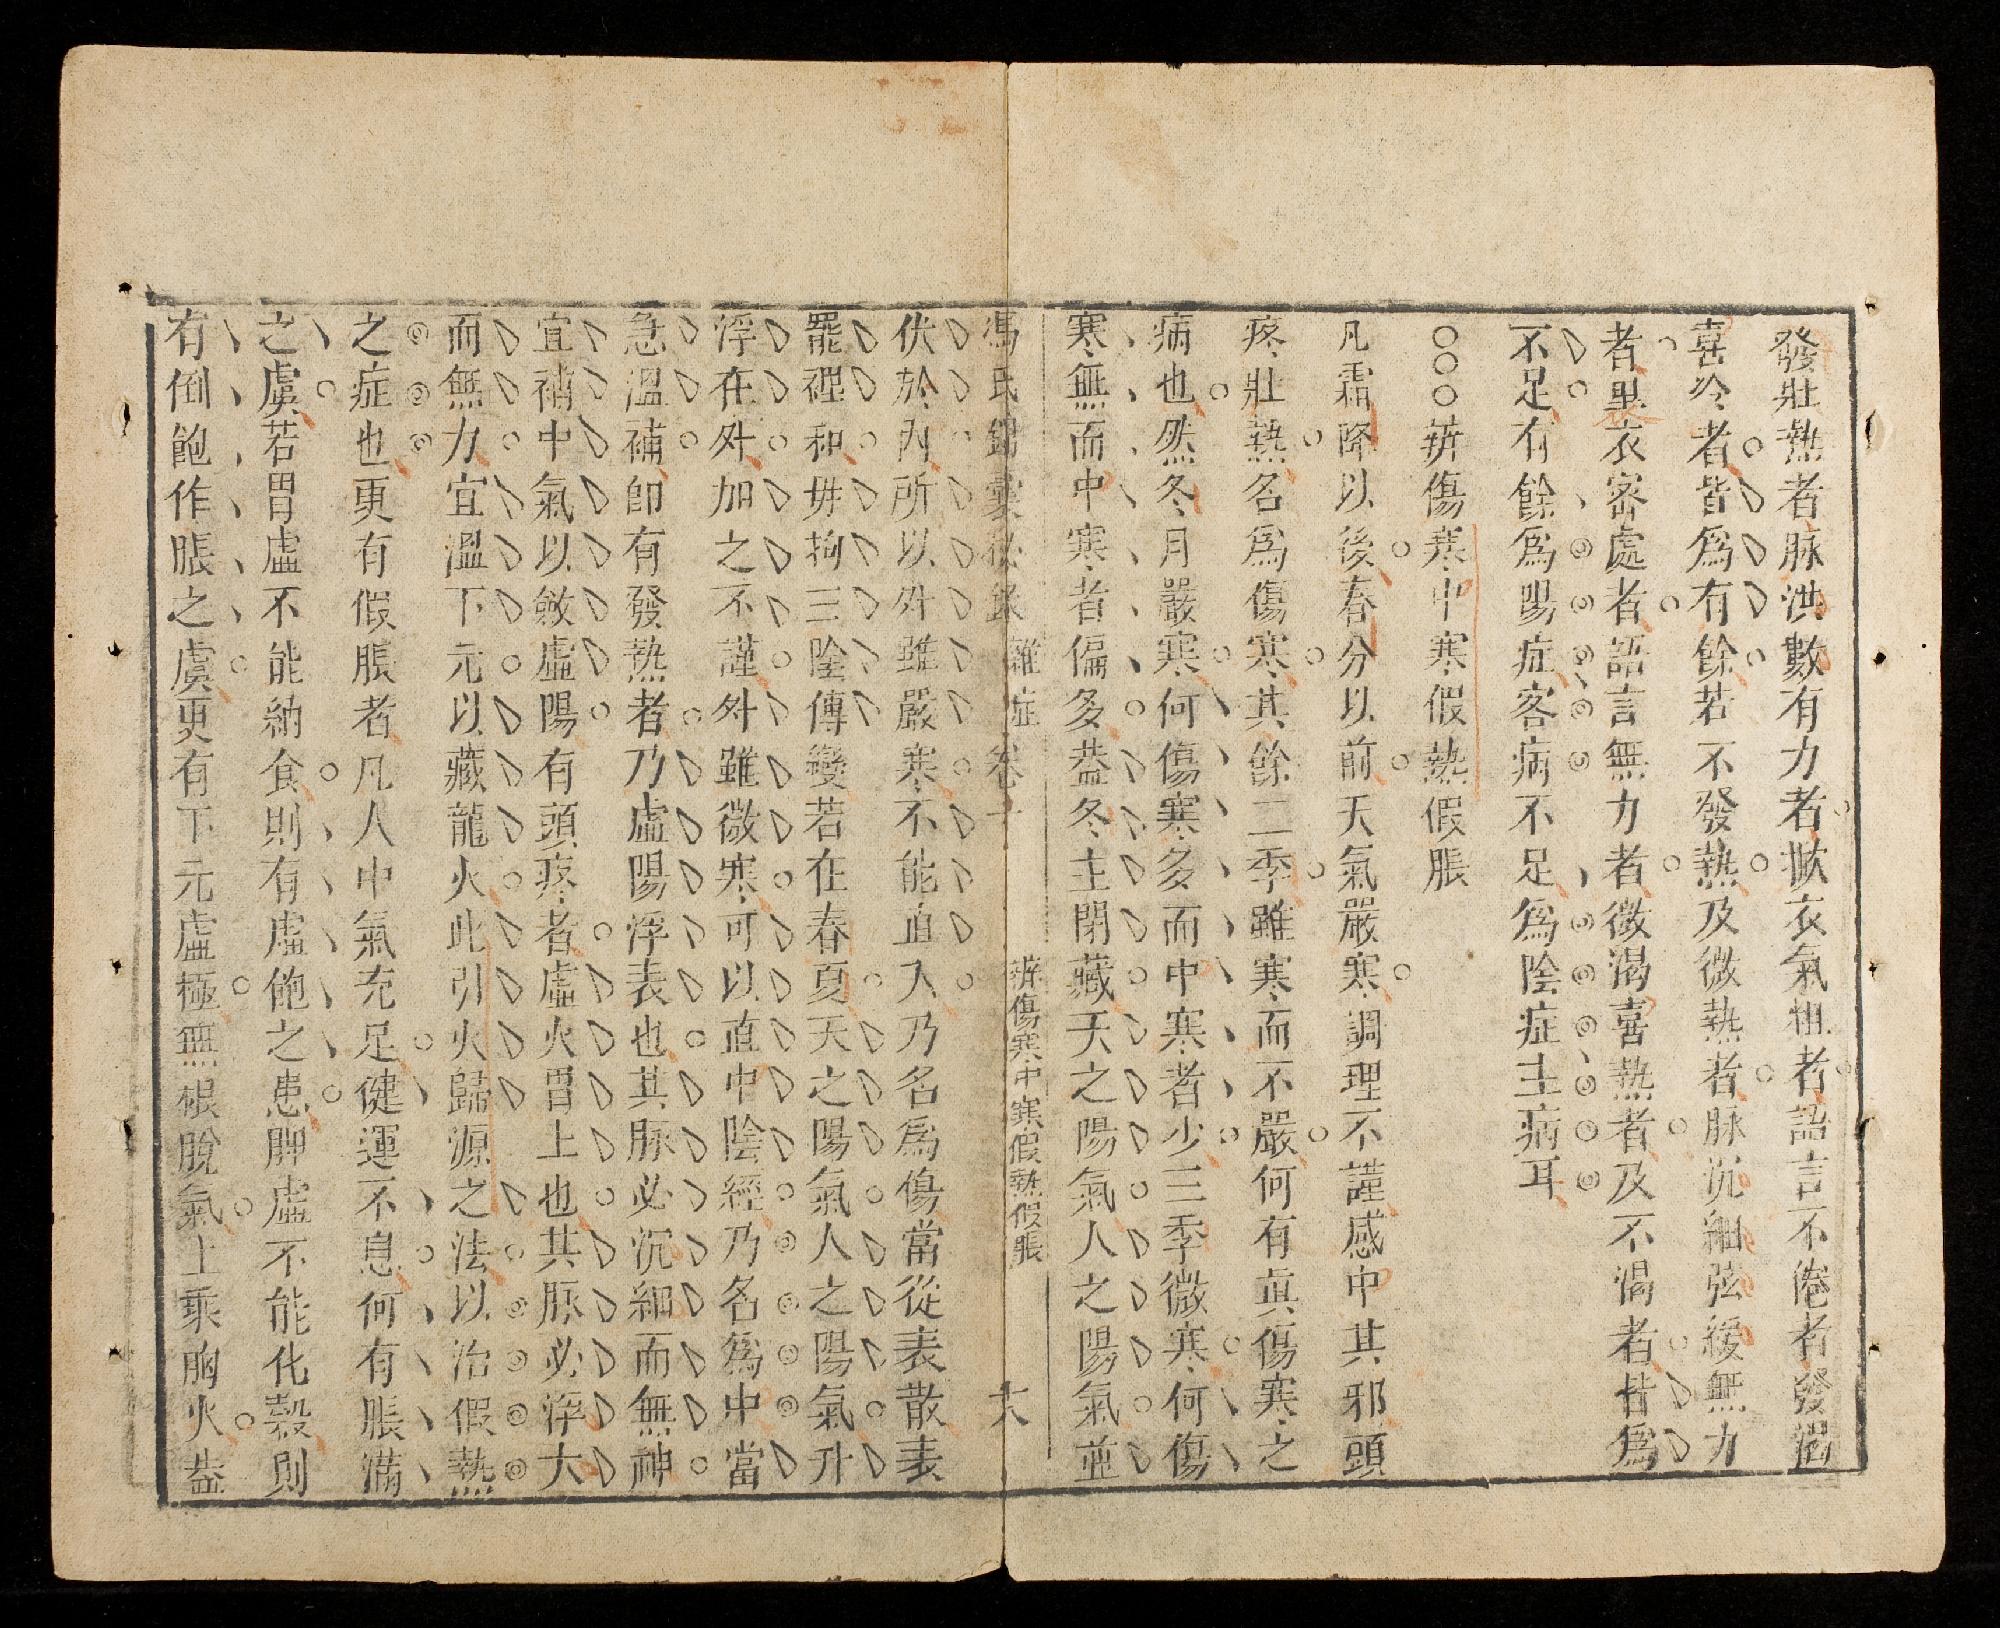 發壯熱者脉洪數有力者揿衣氣粗者語言不倦者發渴
喜冷者皆爲有餘若不發熱及微熱者脉沉細弦緩無力
者裹衣密處者語言無力者微渴喜熱者及不渴者皆爲
不足有餘爲陽症客病不足爲陰症主病耳
○○○辨傷寒中寒假熱假脹
凡霜降以後春分以前天氣嚴寒調理不謹感中其邪頭
疼壯熱名爲傷寒其餘二季雖寒而不嚴何有眞傷寒之
病也然冬月嚴寒何傷寒多而中寒者少三季微寒何傷
寒無而中寒者偏多葢冬主閉藏天之陽氣人之陽氣並
馮氏錦囊秘錄 雜症 卷十 辨傷寒中寒假熱假脹 十八
伏於內所以外雖嚴寒不能直入乃名爲傷當從表散表
罷裡和毋拘三陰傳變若在春夏天之陽氣人之陽氣升
浮在外加之不謹外雖微寒可以直中陰經乃名爲中當
急溫補卽有發熱者乃虛陽浮表也其脉必沉細而無神
宜補中氣以斂虛陽有頭疼者虛火冒上也其脉必浮大
而無力宜溫下元以藏龍火此引火歸源之法以治假熱
之症也更有假脹者凡人中氣充足健運不息何有脹滿
之虞若胃虛不能納食則有虛飽之患脾虛不能化穀則
有倒飽作脹之虞更有下元虛極無根脫氣上乘胸火葢